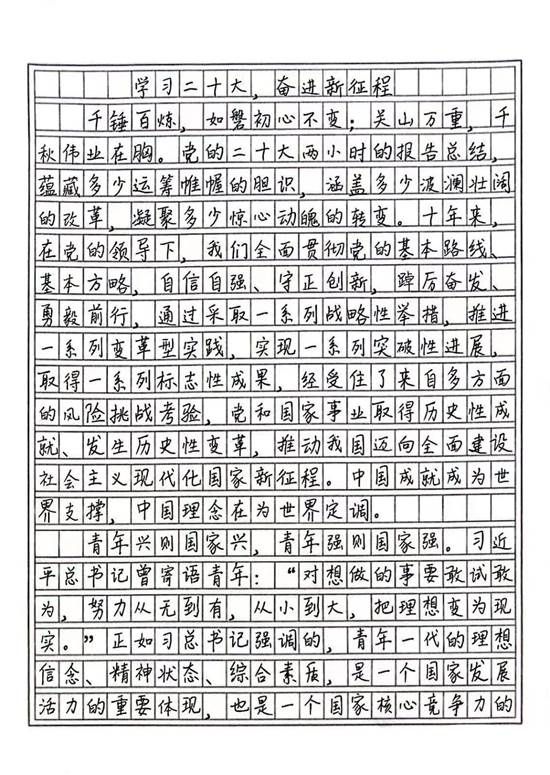 学习二十大，奋进新征程
千锤百炼，如磐初心不变；关山万重，千
秋伟业在胸。党的二十大两小时的报告总结，
蕴藏多少运筹帷幄的胆识，涵盖多少波澜壮阔
的改革，凝聚多少惊心动魄的转变。十年来，
在党的领导下，我们全面贯彻党的基本路线、
基本方略，自信自强、守正创新，踔厉奋发、
勇毅前行，通过采取一系列战略性举措，推进
一系列变革型实践，实现一系列突破性进展，
取得一系列标志性成果，经受住了来自多方面
的风险挑战考验，党和国家事业取得历史性成
就、发生历史性变革，推动我国迈向全面建设
社会主义现代化国家新征程。中国成就成为世
界支撑，中国理念在为世界定调。
青年兴则国家兴，青年强则国家强。习近
平总书记曾寄语青年：“对想做的事要敢试敢
为，努力从无到有，从小到大，把理想变为现
实。”正如习总书记强调的，青年一代的理想
信念、精神状态、综合素质，是一个国家发展
活力的重要体现，也是一个国家核心竞争力的